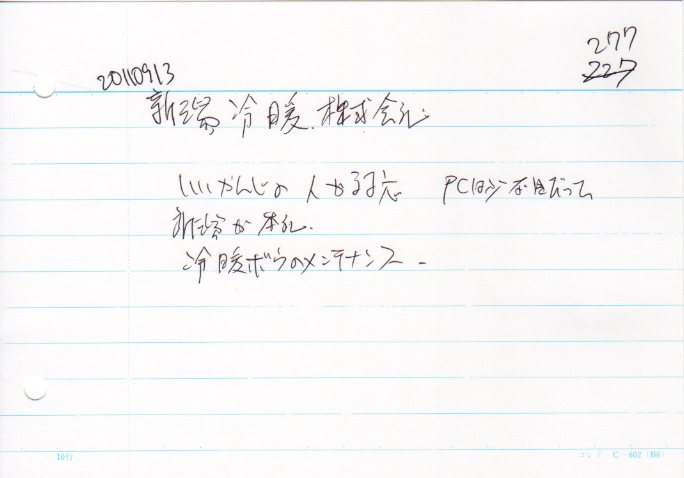 277
227
20110913
新潟冷暖株式会社
いいかんじの人が対応 PCは少
新潟が本社.
冷暖ボウのメンテナンス.
10行 コレクト C-602 (B6)